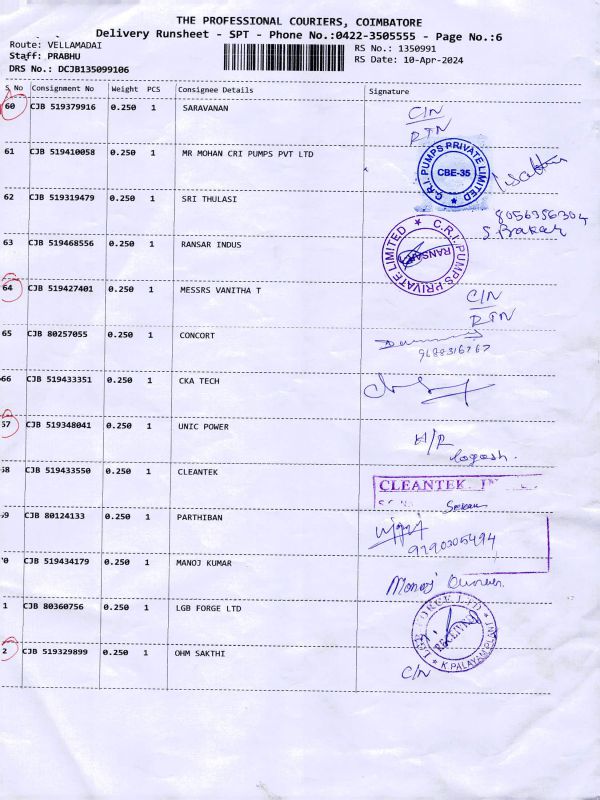 THE PROFESSIONAL COURIERS, COIMBATORE
Delivery Runsheet - SPT - Phone No.:0422-3505555 - Page No.:6
Route: VELLAMADAI
Staff: PRABHU
DRS No.: DCJB135099106
RS No.: 1350991
RS Date: 10-Apr-2024
S No Consignment No Weight PCS Consignee Details Signature
60 CJB 519379916 0.250 1 SARAVANAN C/N
RTN
61 CJB 519410058 0.250 1 MR MOHAN CRI PUMPS PVT LTD
C.R.I. PUMPS PRIVATE LIMITED
CBE-35
62 CJB 519319479 0.250 1 SRI THULASI
8056356304
63 CJB 519468556 0.250 1 RANSAR INDUS
C.R.I. PUMPS PRIVATE LIMITED
RANSAR
64 CJB 519427401 0.250 1 MESSRS VANITHA T C/N
RTN
65 CJB 80257055 0.250 1 CONCORT
66 CJB 519433351 0.250 1 CKA TECH
67 CJB 519348041 0.250 1 UNIC POWER
68 CJB 519433550 0.250 1 CLEANTEK
CLEANTEK
69 CJB 80124133 0.250 1 PARTHIBAN
9790305494
70 CJB 519434179 0.250 1 MANOJ KUMAR
Manoj Kumar
1 CJB 80360756 0.250 1 LGB FORGE LTD
LGB FORGE LTD
RECEIVED
K.PALAYAM
2 CJB 519329899 0.250 1 OHM SAKTHI
C/N